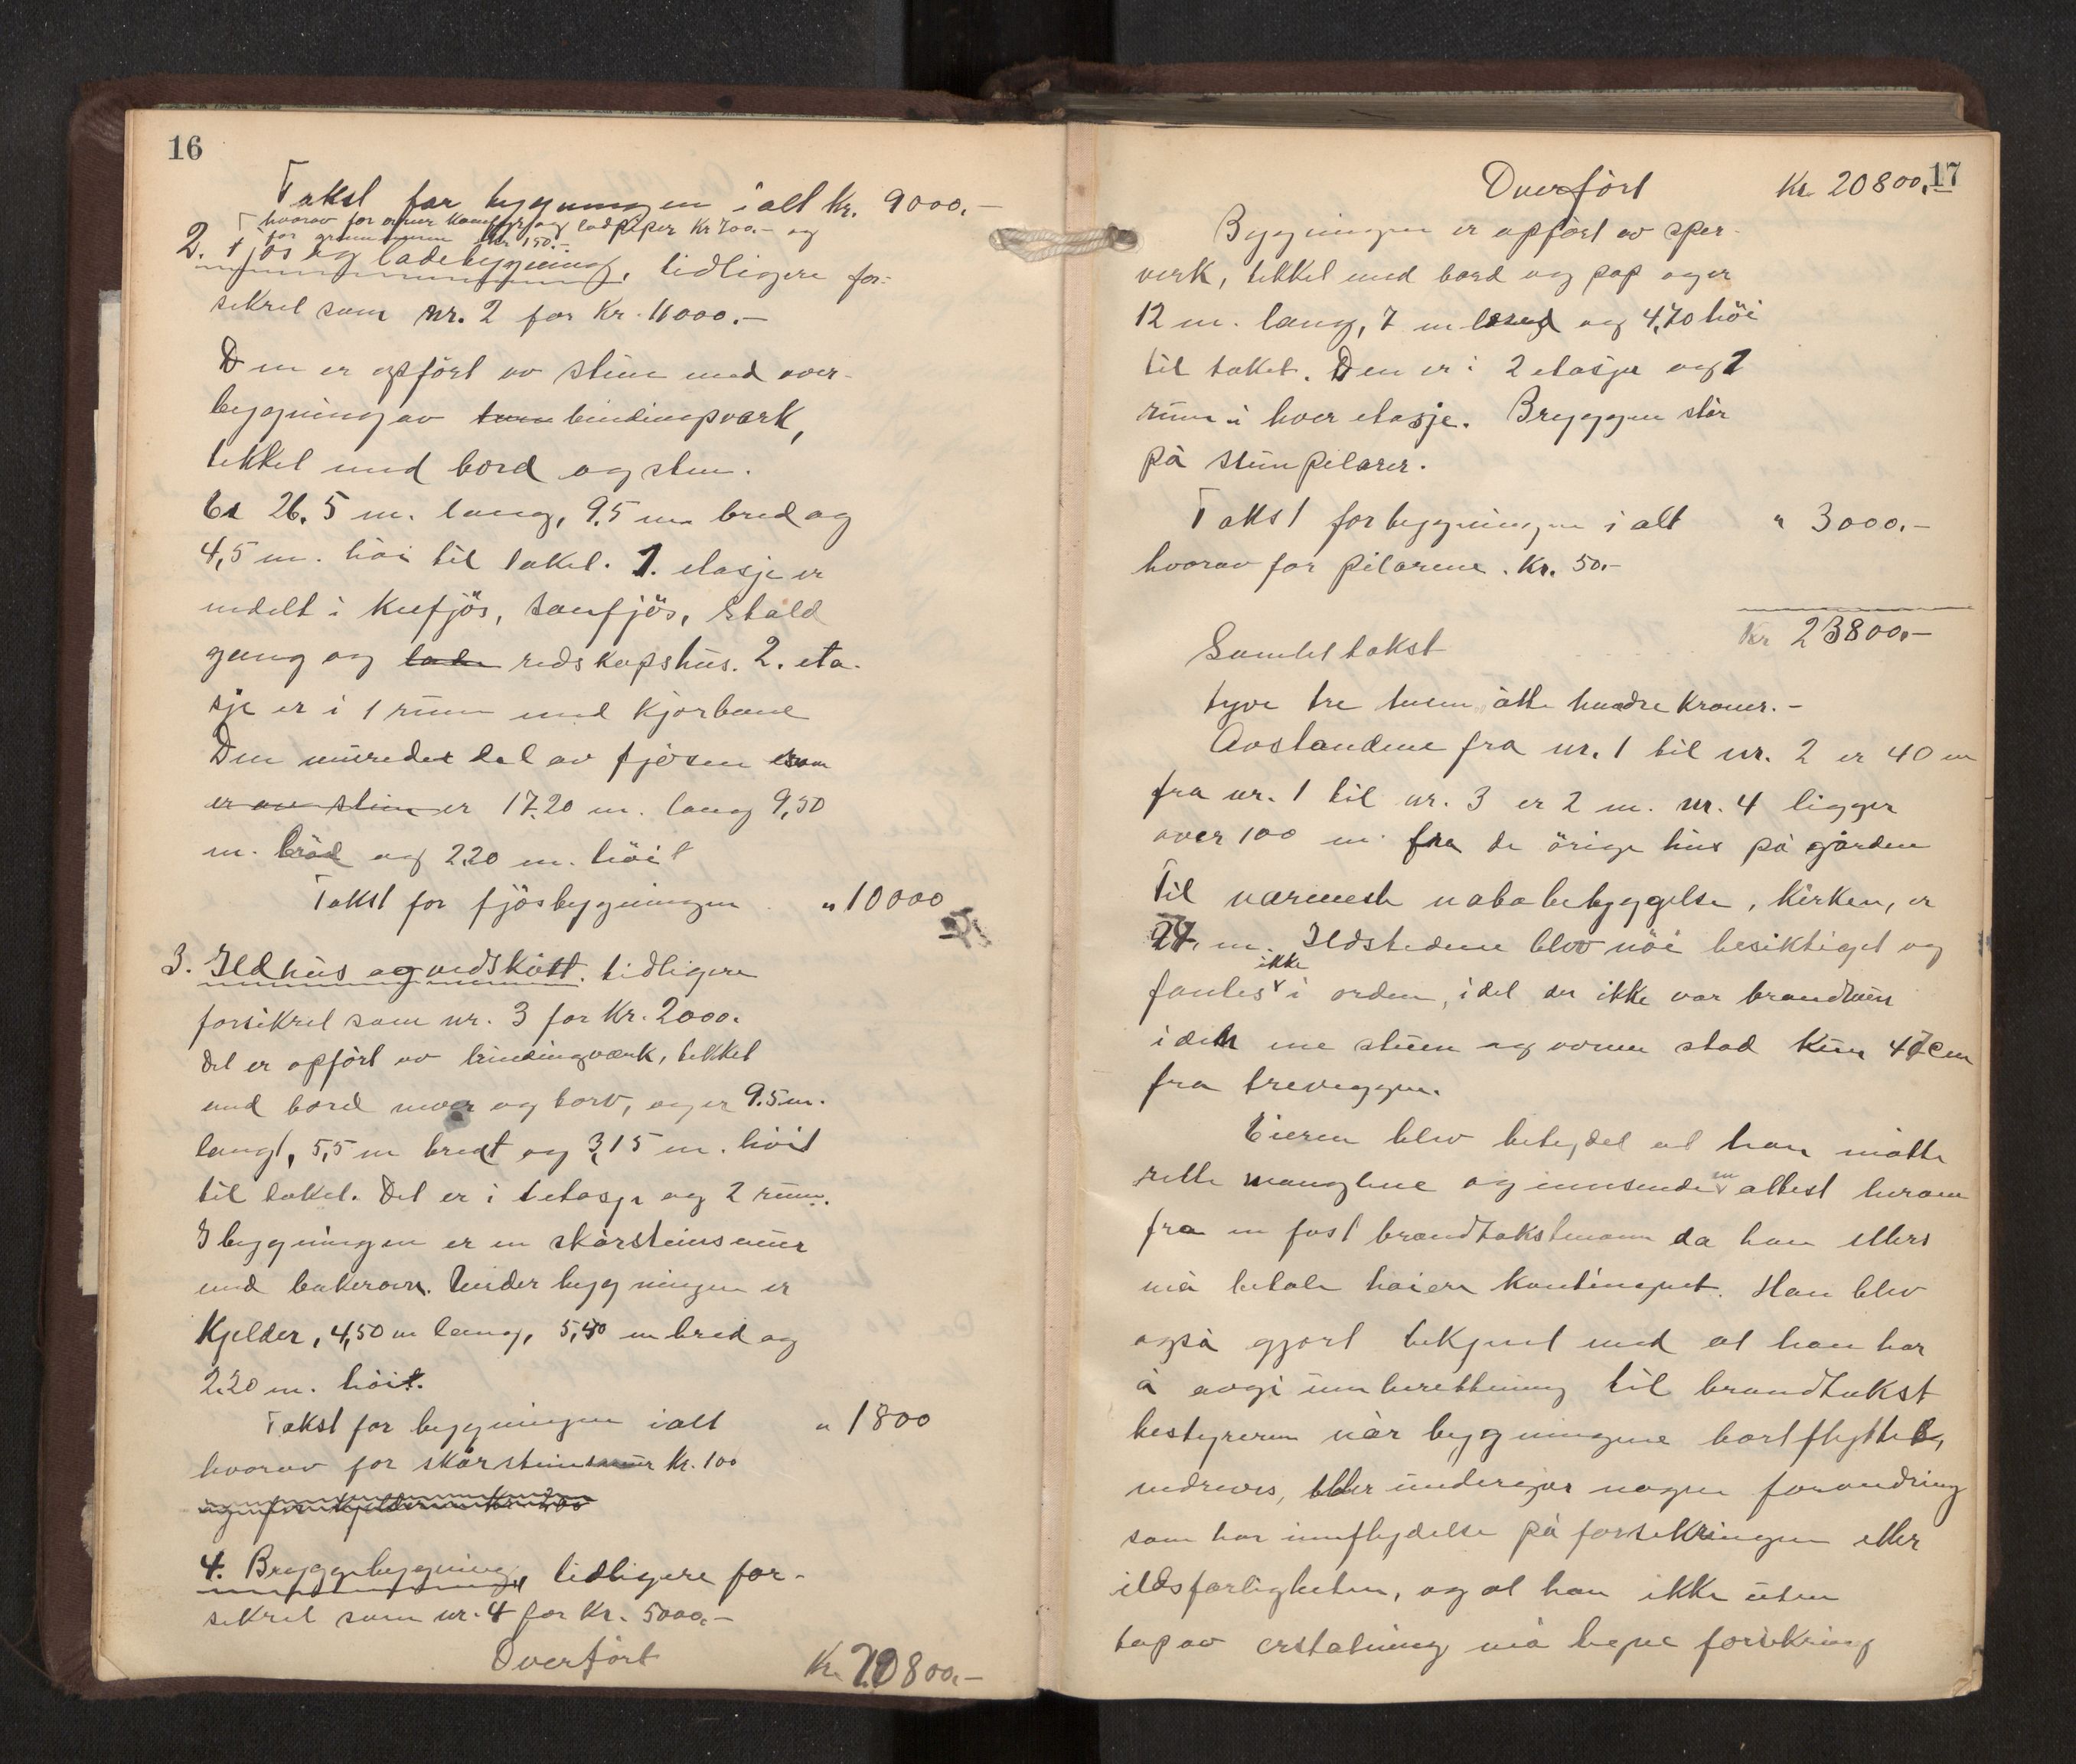 16
Takst for bygningen i alt Kr. 9000.-
hvorav for ovner komfyr og ladpiper Kr 700.- og
for grunnmuren Kr 150.-
2. Fjös og ladebygning, tidligere for-
sikret som nr. 2 for Kr. 11000.-
Den er opfört av stein med over-
bygning av bindingsværk,
tekket med bord og sten.
Er 26.5 m. lang, 9.5 m bred og
4,5 m. höi til taket. 1. etasje er
indelt i kufjös, saufjös, stald
gang og lade redskapshus. 2. eta-
sje er i 1 rum med kjörbane
Den murede del av fjösen som
er av stein er 17.20 m. lang 9,50
m. bred og 2.20 m. höit
Takst for fjösbygningen " 10000
3. Ildhus og vedskott. tidligere
forsikret som nr. 3 for Kr. 2000.
Det er opfört av bindingværk, tekket
med bord never og torv, og er 9.5 m.
langt, 5,5 m bredt og 3,15 m. höit
til taket. Det er i 1 etasje og 2 rum.
I bygningen er en skorsteinsmur
med bakerovn. Under bygningen er
Kjelder, 4,50 m lang, 5,40 m bred og
2.20 m. höit.
Takst for bygningen ialt " 1800
hvorav for skorsteinsmur Kr. 100
og for kjelderen Kr. 200
4. Bryggebygning, tidligere for-
sikret som nr. 4 for Kr. 5000.-
Overfört Kr. 20800.-
17
Overfört Kr. 20800.-
Bygningen er opfört av sper-
verk, tekket med bord og pap og er
12 m. lang, 7 m bred og 4,70 höi
til taket. Den er i 2 etasje og 1
rum i hver etasje. Bryggen står
på steinpilarer.
Takst for bygningen i alt " 3000.-
hvorav for pilarene. Kr. 50.-
Samlet takst Kr 23800.-
tyve tre tusen åtte hundre kroner.-
Avstandene fra nr. 1 til nr. 2 er 40 m
fra nr. 1 til nr. 3 er 2 m. nr. 4 ligger
over 100 m. fra de örige hus på gården
Til nærmeste nabobebyggelse, kirken, er
m. Ildstedene blev nöi besiktiget og
fantes ikke i orden, idet der ikke var brandmur
i den ene stuen og ovnen stod kun 47 cm
fra treveggen.
Eieren blev betydet at han måtte
rette manglene og innsende en attest herom
fra en fast brandtakstmann da han ellers
må betale høiere kontingent. Han blev
også gjort bekjent med at han har
å avgi innberettning til brandtakst
bestyreren når bygningene bortflyttes,
nedrives, eller undergår nogen forandring
som har innflydelse på forsikringen eller
ildsfarligheten, og at han ikke uten
tap av erstatning må tegne forsikring